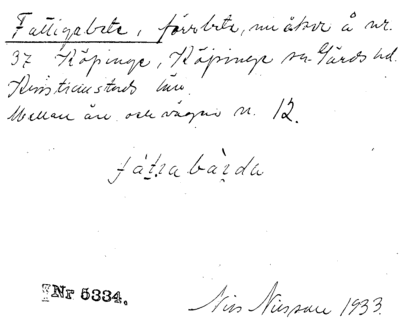 Fattigabete, förrbete, nu åker å nr.
37 Köpinge, Köpinge sn. Gärds hd.
Kristianstads län.
Mellan ån och vägen n. 12.
fátıabàda
Nr 5334.
Nils Nilsson 1933.